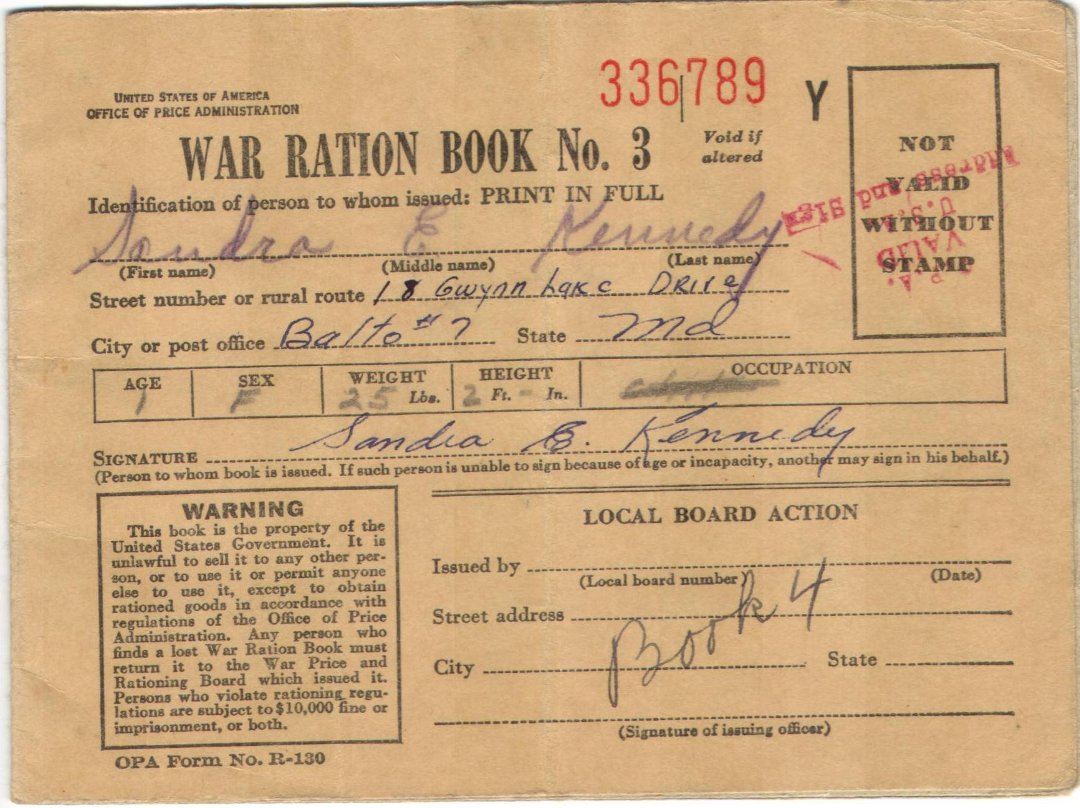 UNITED STATES OF AMERICA
OFFICE OF PRICE ADMINISTRATION
336789 Y
WAR RATION BOOK No. 3
Void if
altered
Identification of person to whom issued: PRINT IN FULL
Sandra E Kennedy
(First name) (Middle name) (Last name)
Street number or rural route 18 Gwynn Lake Drive
City or post office Balto #7 State Md
NOT
VALID
WITHOUT
STAMP
Address and Sign
VALID
AGE SEX WEIGHT HEIGHT OCCUPATION
1 F 25 Lbs. 2 Ft. - In.
SIGNATURE Sandra E. Kennedy
(Person to whom book is issued. If such person is unable to sign because of age or incapacity, another may sign in his behalf.)
WARNING
This book is the property of the
United States Government. It is
unlawful to sell it to any other per-
son, or to use it or permit anyone
else to use it, except to obtain
rationed goods in accordance with
regulations of the Office of Price
Administration. Any person who
finds a lost War Ration Book must
return it to the War Price and
Rationing Board which issued it.
Persons who violate rationing regu-
lations are subject to $10,000 fine or
imprisonment, or both.
OPA Form No. R-130
LOCAL BOARD ACTION
Issued by
(Local board number) (Date)
Street address
Book 4
City State
(Signature of issuing officer)